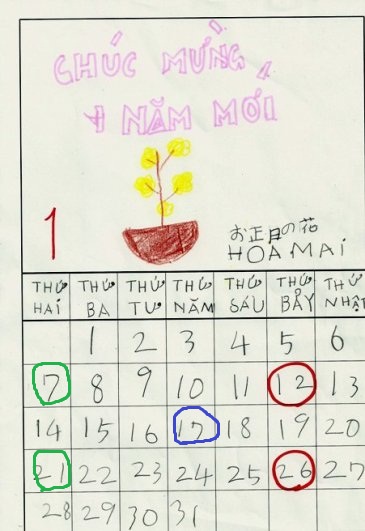 CHÚC MỪNG
NĂM MỚI
1
お正月の花
HOA MAI
THỨ HAI THỨ BA THỨ TƯ THỨ NĂM THỨ SÁU THỨ BẢY THỨ NHẬT
1 2 3 4 5 6
7 8 9 10 11 12 13
14 15 16 17 18 19 20
21 22 23 24 25 26 27
28 29 30 31